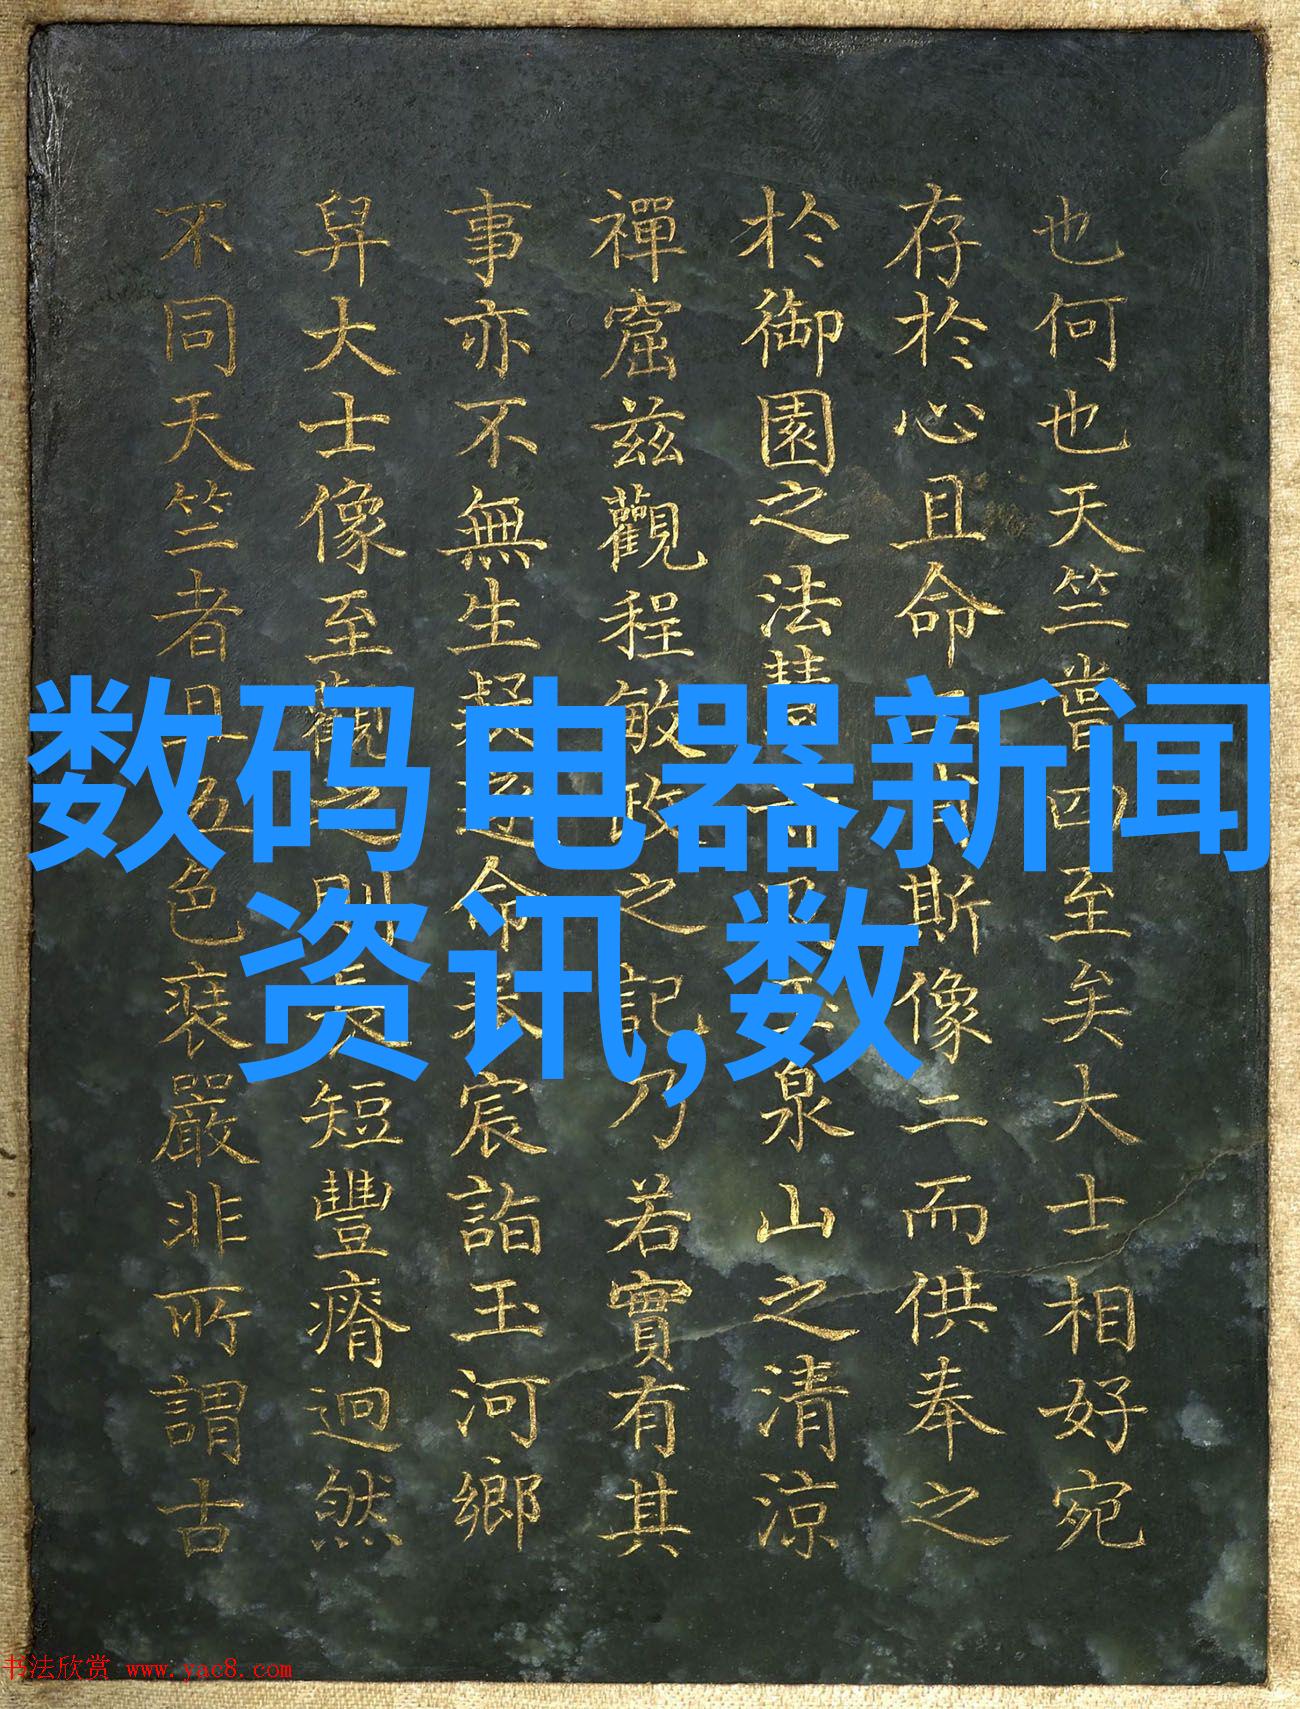 也何也天竺嘗四至矣大士相好宛
存於心且命斯像二而供奉之
於御園之法泉山之清涼
禪窟兹觀程敏政之記乃若實有其
事亦不無生疑迺命表宸詣玉河鄉
舁大士像至觀之則長短豐瘠迥然
不同天竺者具五色裵嚴非所謂古
数码电器新闻
资讯,数
书法欣赏 www.yac8.com